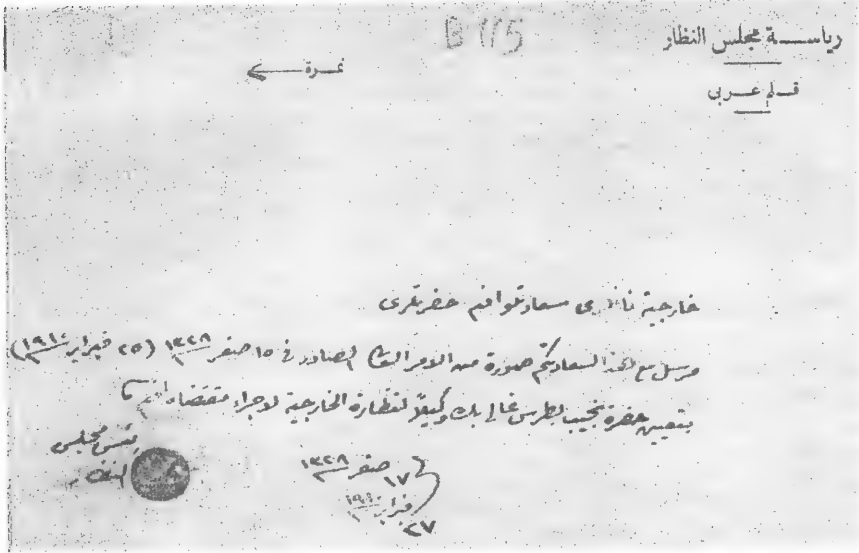 رياسة مجلس النظار
B 115
نمرة
قلم عربى
خارجية ناظرى سعادتلو افندم حضرتلرى
مرسل مع هذا لسعادتكم صورة من الامر العالى الصادر فى ١٥ صفر ١٣٢٨ (٢٥ فبراير ١٩١٠)
بتعيين حضرة نجيب بطرس غالى بك وكيلاً لنظارة الخارجية لاجراء مقتضاه افندم
رئيس مجلس
النظار
١٧ صفر ١٣٢٨
٢٧ فبراير ١٩١٠